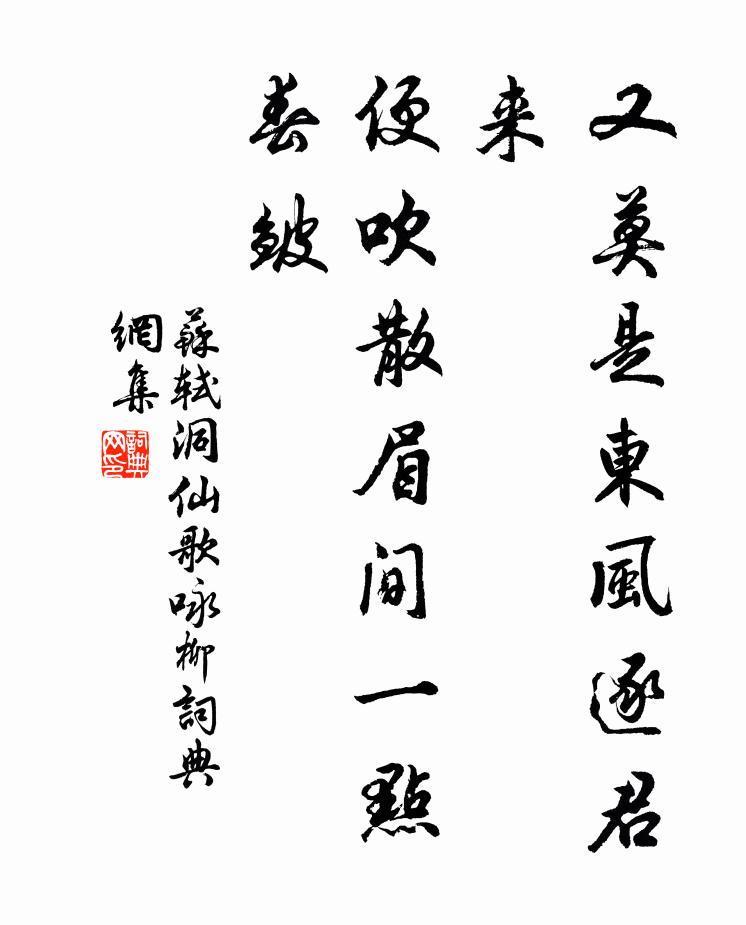 又莫是東風逐君
来
便吹散眉間一點
春皺
蘇軾洞仙歌咏柳詞典
網集
詞典
网印